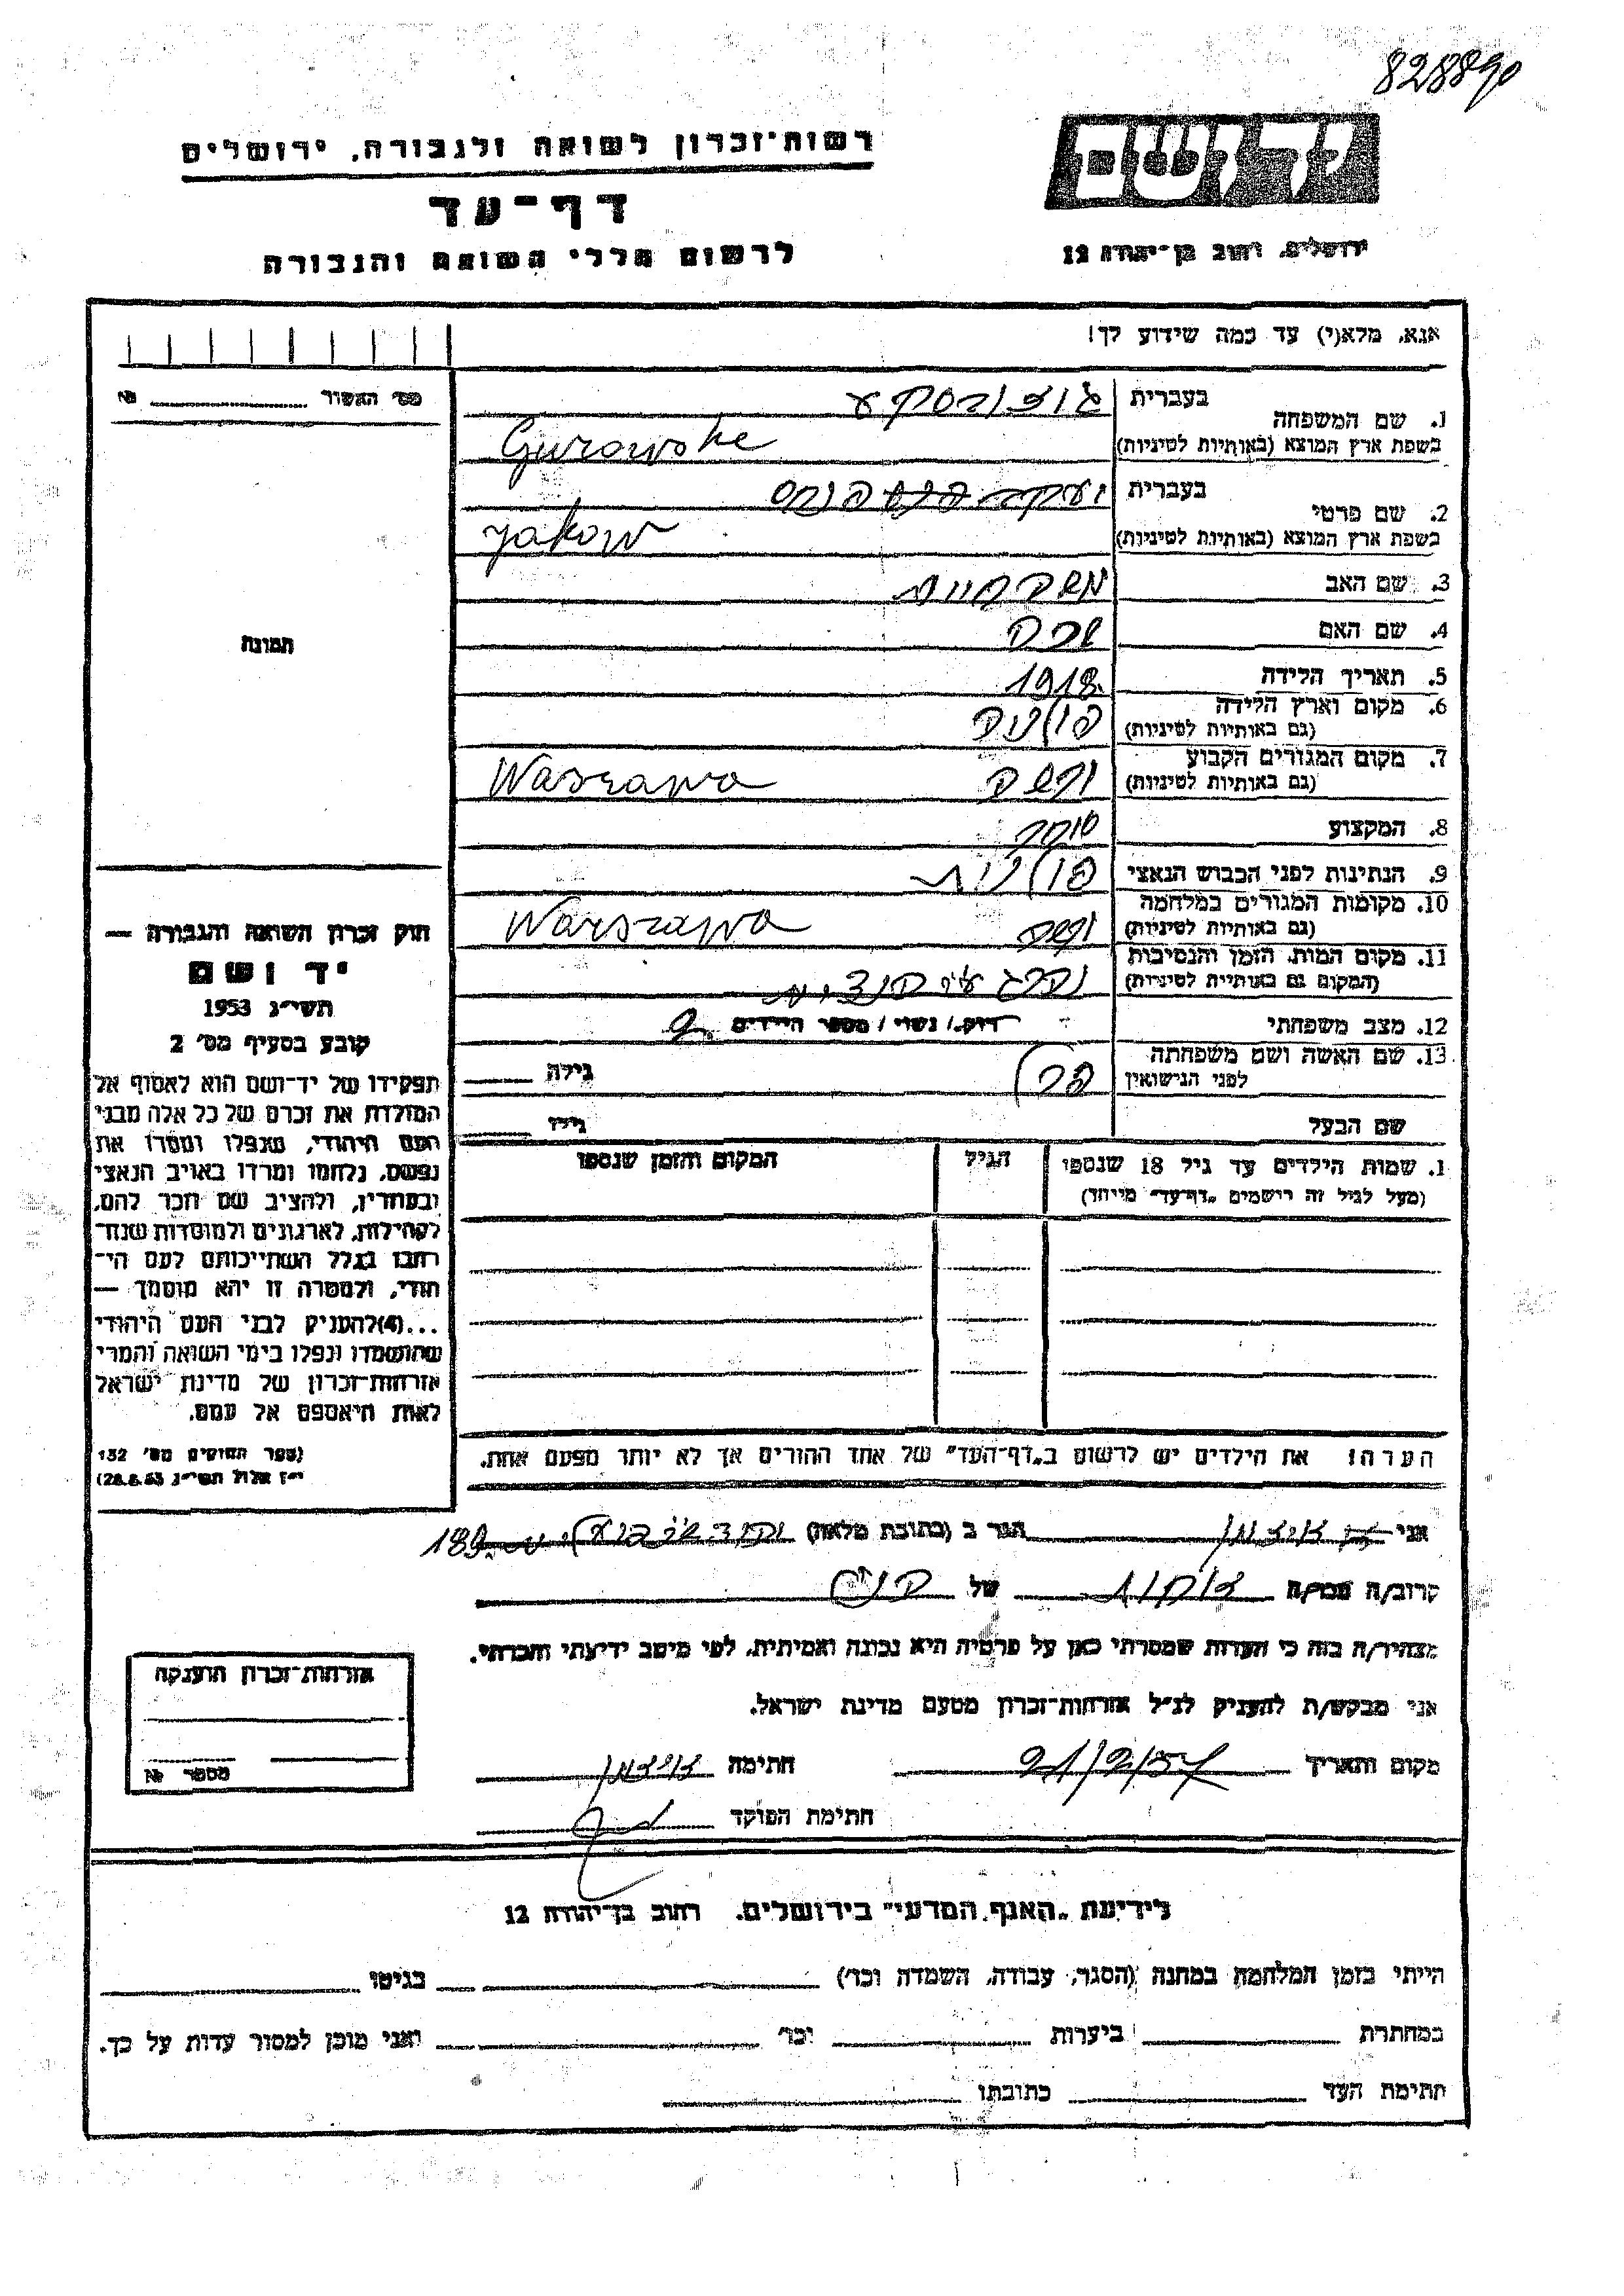 828890
יד ושם
רשות-זכרון לשואה ולגבורה, ירושלים
דף-עד
לרשום חללי השואה והגבורה
ירושלים, רחוב בן-יהודה 12
אנא, מלא(י) עד כמה שידוע לך!
מס' האשור № 
1. שם המשפחה
בעברית
בשפת ארץ המוצא (באותיות לטיניות)
Gurowske
2. שם פרטי
בעברית יעקב
בשפת ארץ המוצא (באותיות לטיניות)
Jakow
3. שם האב
4. שם האם
5. תאריך הלידה 1918
6. מקום וארץ הלידה
(גם באותיות לטיניות)
פולניה
7. מקום המגורים הקבוע
(גם באותיות לטיניות)
ורשה Warszawa
8. המקצוע סוחר
9. הנתינות לפני הכבוש הנאצי פולנית
10. מקומות המגורים במלחמה
(גם באותיות לטיניות)
ורשה Warszawa
11. מקום המות, הזמן והנסיבות
(המקום גם באותיות לטיניות)
נהרג ע״י הנצים
12. מצב משפחתי
רווק / נשוי / מספר הילדים 2
13. שם האשה ושם משפחתה
לפני הנישואין
גילה
שם הבעל
גילו
תמונה
חוק זכרון השואה והגבורה —
יד ושם
תשי״ג 1953
קובע בסעיף מס' 2
תפקידו של יד-ושם הוא לאסוף אל
המולדת את זכרם של כל אלה מבני
העם היהודי, שנפלו ומסרו את
נפשם, נלחמו ומרדו באויב הנאצי
ובעוזריו, ולהציב שם וזכר להם,
לקהילות, לארגונים ולמוסדות שנח-
רבו בגלל השתייכותם לעם הי-
הודי, ולמטרה זו יהא מוסמך —
...(4)להעניק לבני העם היהודי
שהושמדו ונפלו בימי השואה והמרי
אזרחות-זכרון של מדינת ישראל
לאות היאספם אל עמם.
(ספר החוקים מס' 132
י״ז אלול תשי״ג 28.8.53)
1. שמות הילדים עד גיל 18 שנספו
(מעל לגיל זה רישומים „דף-עד" מיוחד)
הגיל
המקום והזמן שנספו
הערה! את הילדים יש לרשום ב„דף-העד" של אחד ההורים אך לא יותר מפעם אחת.
אני
הגר ב (כתובת מלאה)
189
קרוב/ה מכר/ה
של
מצהיר/ה בזה כי העדות שמסרתי כאן על פרטיה היא נכונה ואמיתית, לפי מיטב ידיעתי והכרתי.
אני מבקש/ת להעניק לנ״ל אזרחות-זכרון מטעם מדינת ישראל.
מקום ותאריך 21/2/57
חתימה
חתימת הפוקד
אזרחות-זכרון הוענקה
מספר №
לידיעת „האגף המדעי" בירושלים, רחוב בן-יהודה 12
הייתי בזמן המלחמה במחנה (הסגר, עבודה, השמדה וכו') בגיטו
במחתרת ביערות וכו' ואני מוכן למסור עדות על כך.
חתימת העד כתובתו